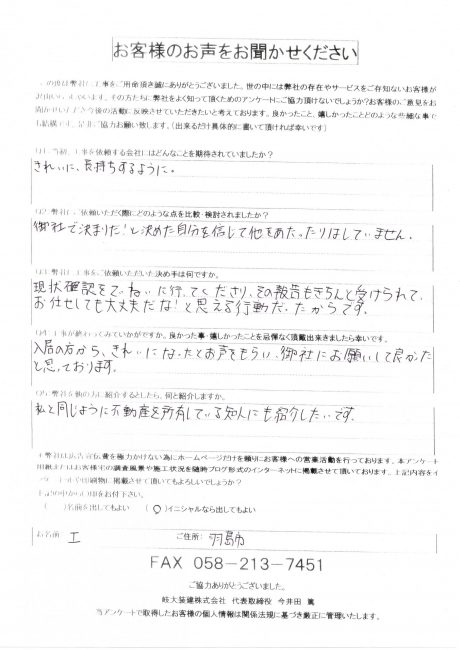 お客様のお声をお聞かせください
この度は弊社に工事をご用命頂き誠にありがとうございました。世の中には弊社の存在やサービスをご存知ないお客様が
その方たちに弊社をよく知って頂くためのアンケートにご協力頂けないでしょうか？お客様のご意見をお
今後の活動に反映させていただきたいと考えております。良かったこと、嬉しかったことどのような些細な事で
も結構です。是非ご協力お願い致します。（出来るだけ具体的に書いて頂ければ幸いです）
Q1.当初、工事を依頼する会社にはどんなことを期待されていましたか？
きれいに、長持ちするように。
Q2.弊社にご依頼いただく際にどのような点を比較・検討されましたか？
御社で決まりだ！と決めた自分を信じて他をあたったりはしていません。
Q3.弊社に工事をご依頼いただいた決め手は何ですか。
現状確認をていねいに行ってくださり、その報告もきちんと受けられて、
お任せしても大丈夫だな！と思える行動だったからです。
Q4.工事が終わってみていかがですか。良かった事・嬉しかったことを忌憚なく頂戴出来ましたら幸いです。
入居の方から、きれいになったとお声をもらい、御社にお願いして良かった
と思っております。
Q5.弊社を他の方に紹介するとしたら、何と紹介しますか。
私と同じように不動産を所有している知人にも紹介したいです。
弊社は広告宣伝費を極力かけない為にホームページだけを頼りにお客様への営業活動を行っております。本アンケート
用紙またはお客様宅の調査風景や施工状況を随時ブログ形式のインターネットに掲載させて頂いております。上記内容をイ
掲載させて頂いてもよろしいでしょうか？
上記の中から○印をお付け下さい。
( )名前を出してもよい (○)イニシャルなら出してもよい
お名前 I ご住所: 羽島市
FAX 058-213-7451
ご協力ありがとうございました。
岐大装建株式会社 代表取締役 今井田 篤
当アンケートで取得したお客様の個人情報は関係法規に基づき厳正に管理いたします。